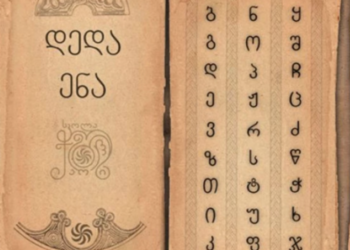 დედა
ენა
სკოლა
ბ ნ ყ
გ ო შ
დ პ ჩ
ე ჟ ც
ვ რ ძ
ზ ს წ
თ ტ ჭ
ი უ ხ
კ ფ ჯ